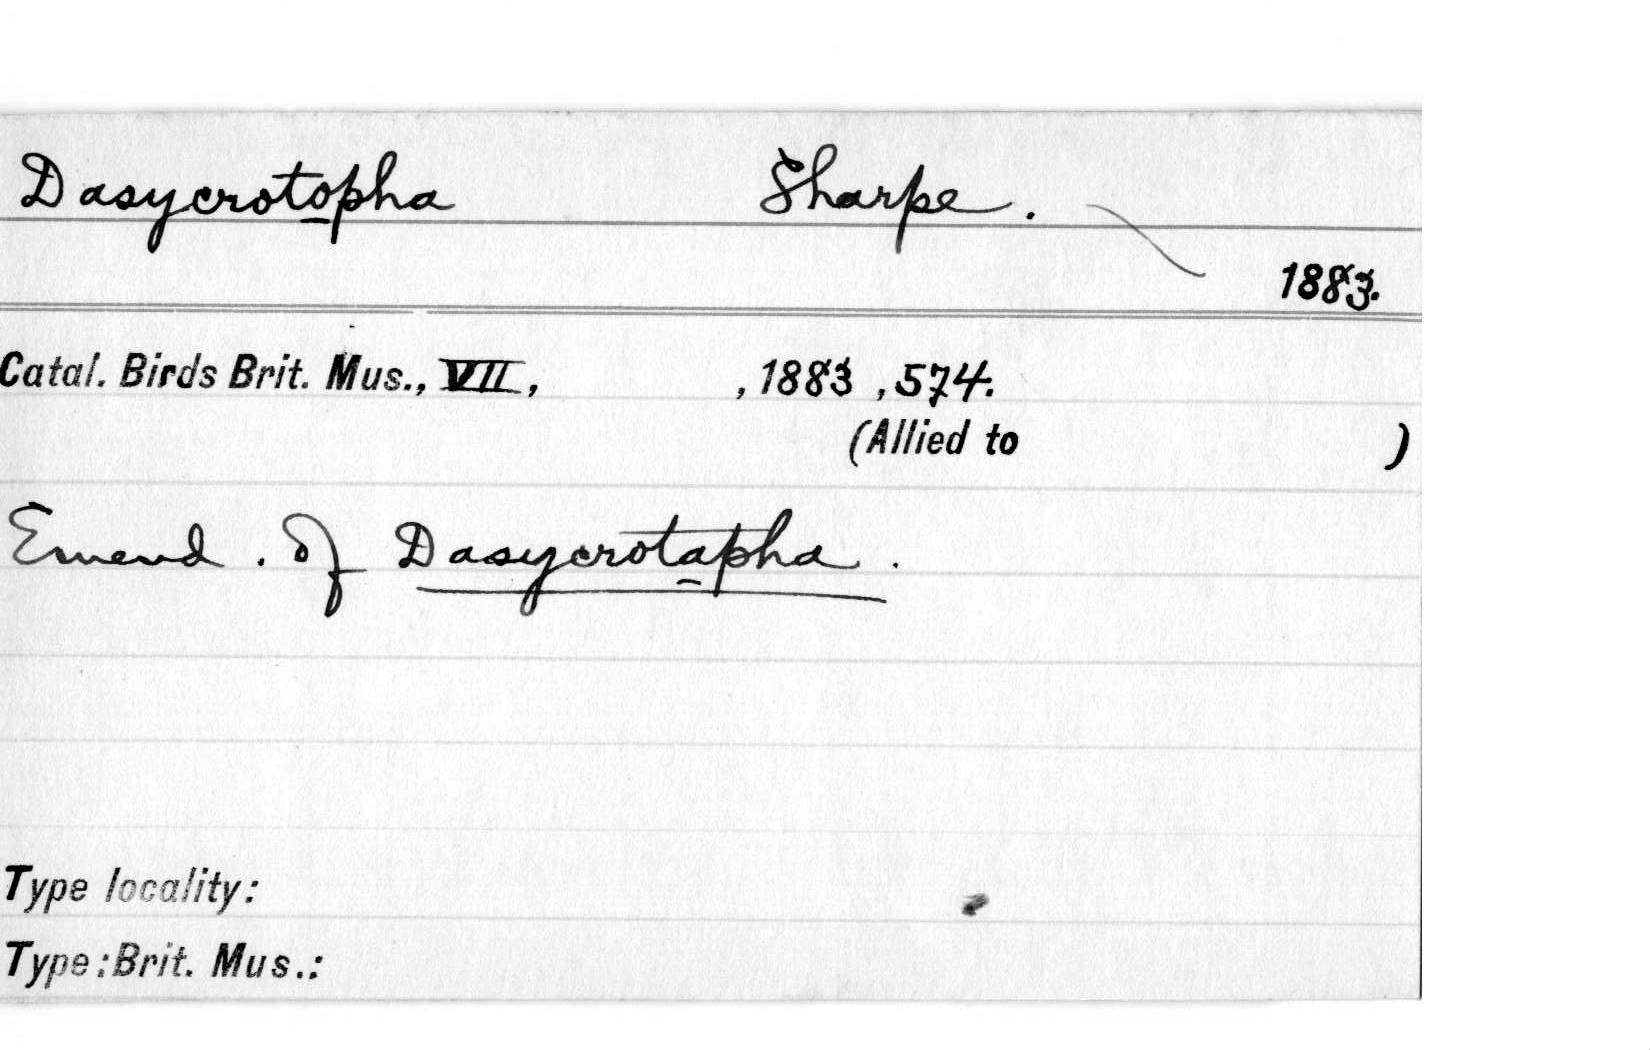 Dasycrotopha Sharpe.
1883.
Catal. Birds Brit. Mus., VII, , 1883 , 574.
(Allied to )
Emend. of Dasycrotapha.
Type locality:
Type: Brit. Mus.: